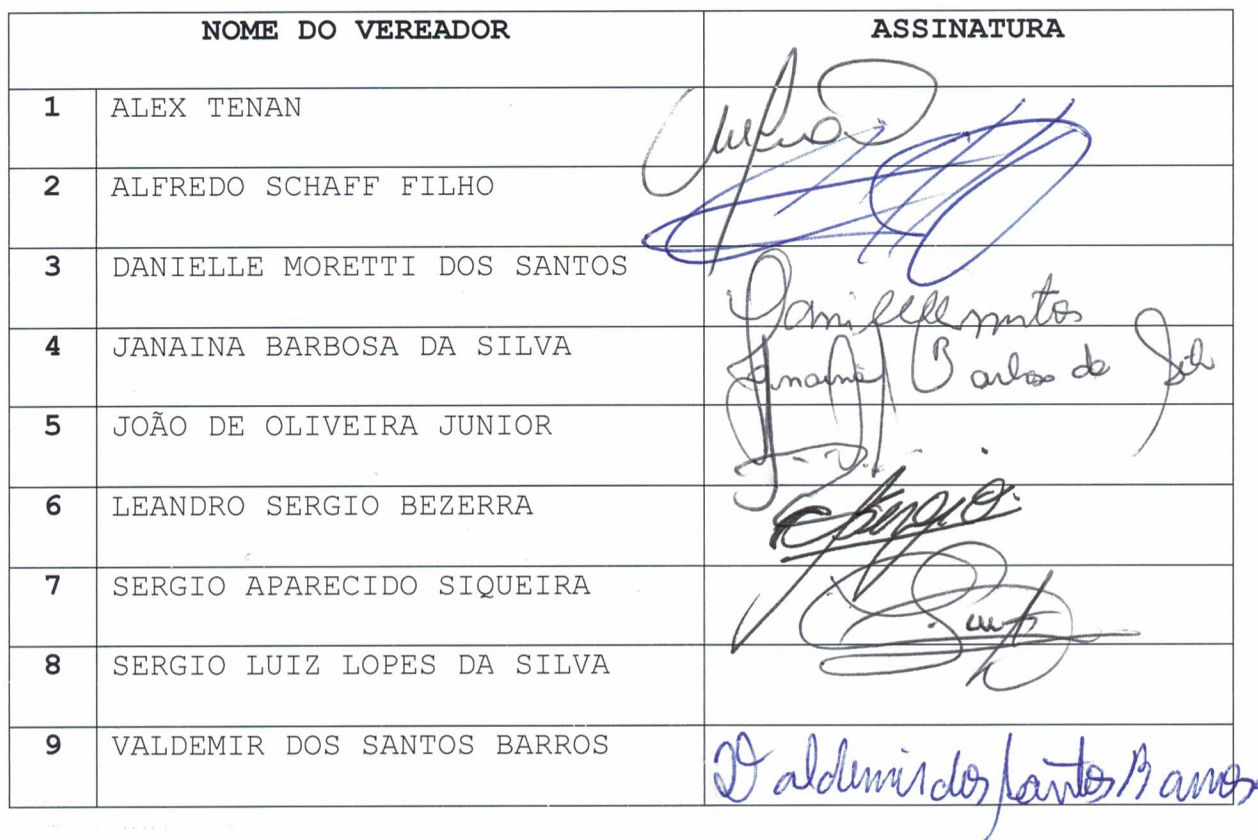 NOME DO VEREADOR ASSINATURA
1 ALEX TENAN
2 ALFREDO SCHAFF FILHO
3 DANIELLE MORETTI DOS SANTOS
4 JANAINA BARBOSA DA SILVA Janaina Barbosa da Silva
5 JOÃO DE OLIVEIRA JUNIOR
6 LEANDRO SERGIO BEZERRA Sergio
7 SERGIO APARECIDO SIQUEIRA
8 SERGIO LUIZ LOPES DA SILVA
9 VALDEMIR DOS SANTOS BARROS Valdemir dos Santos Barros